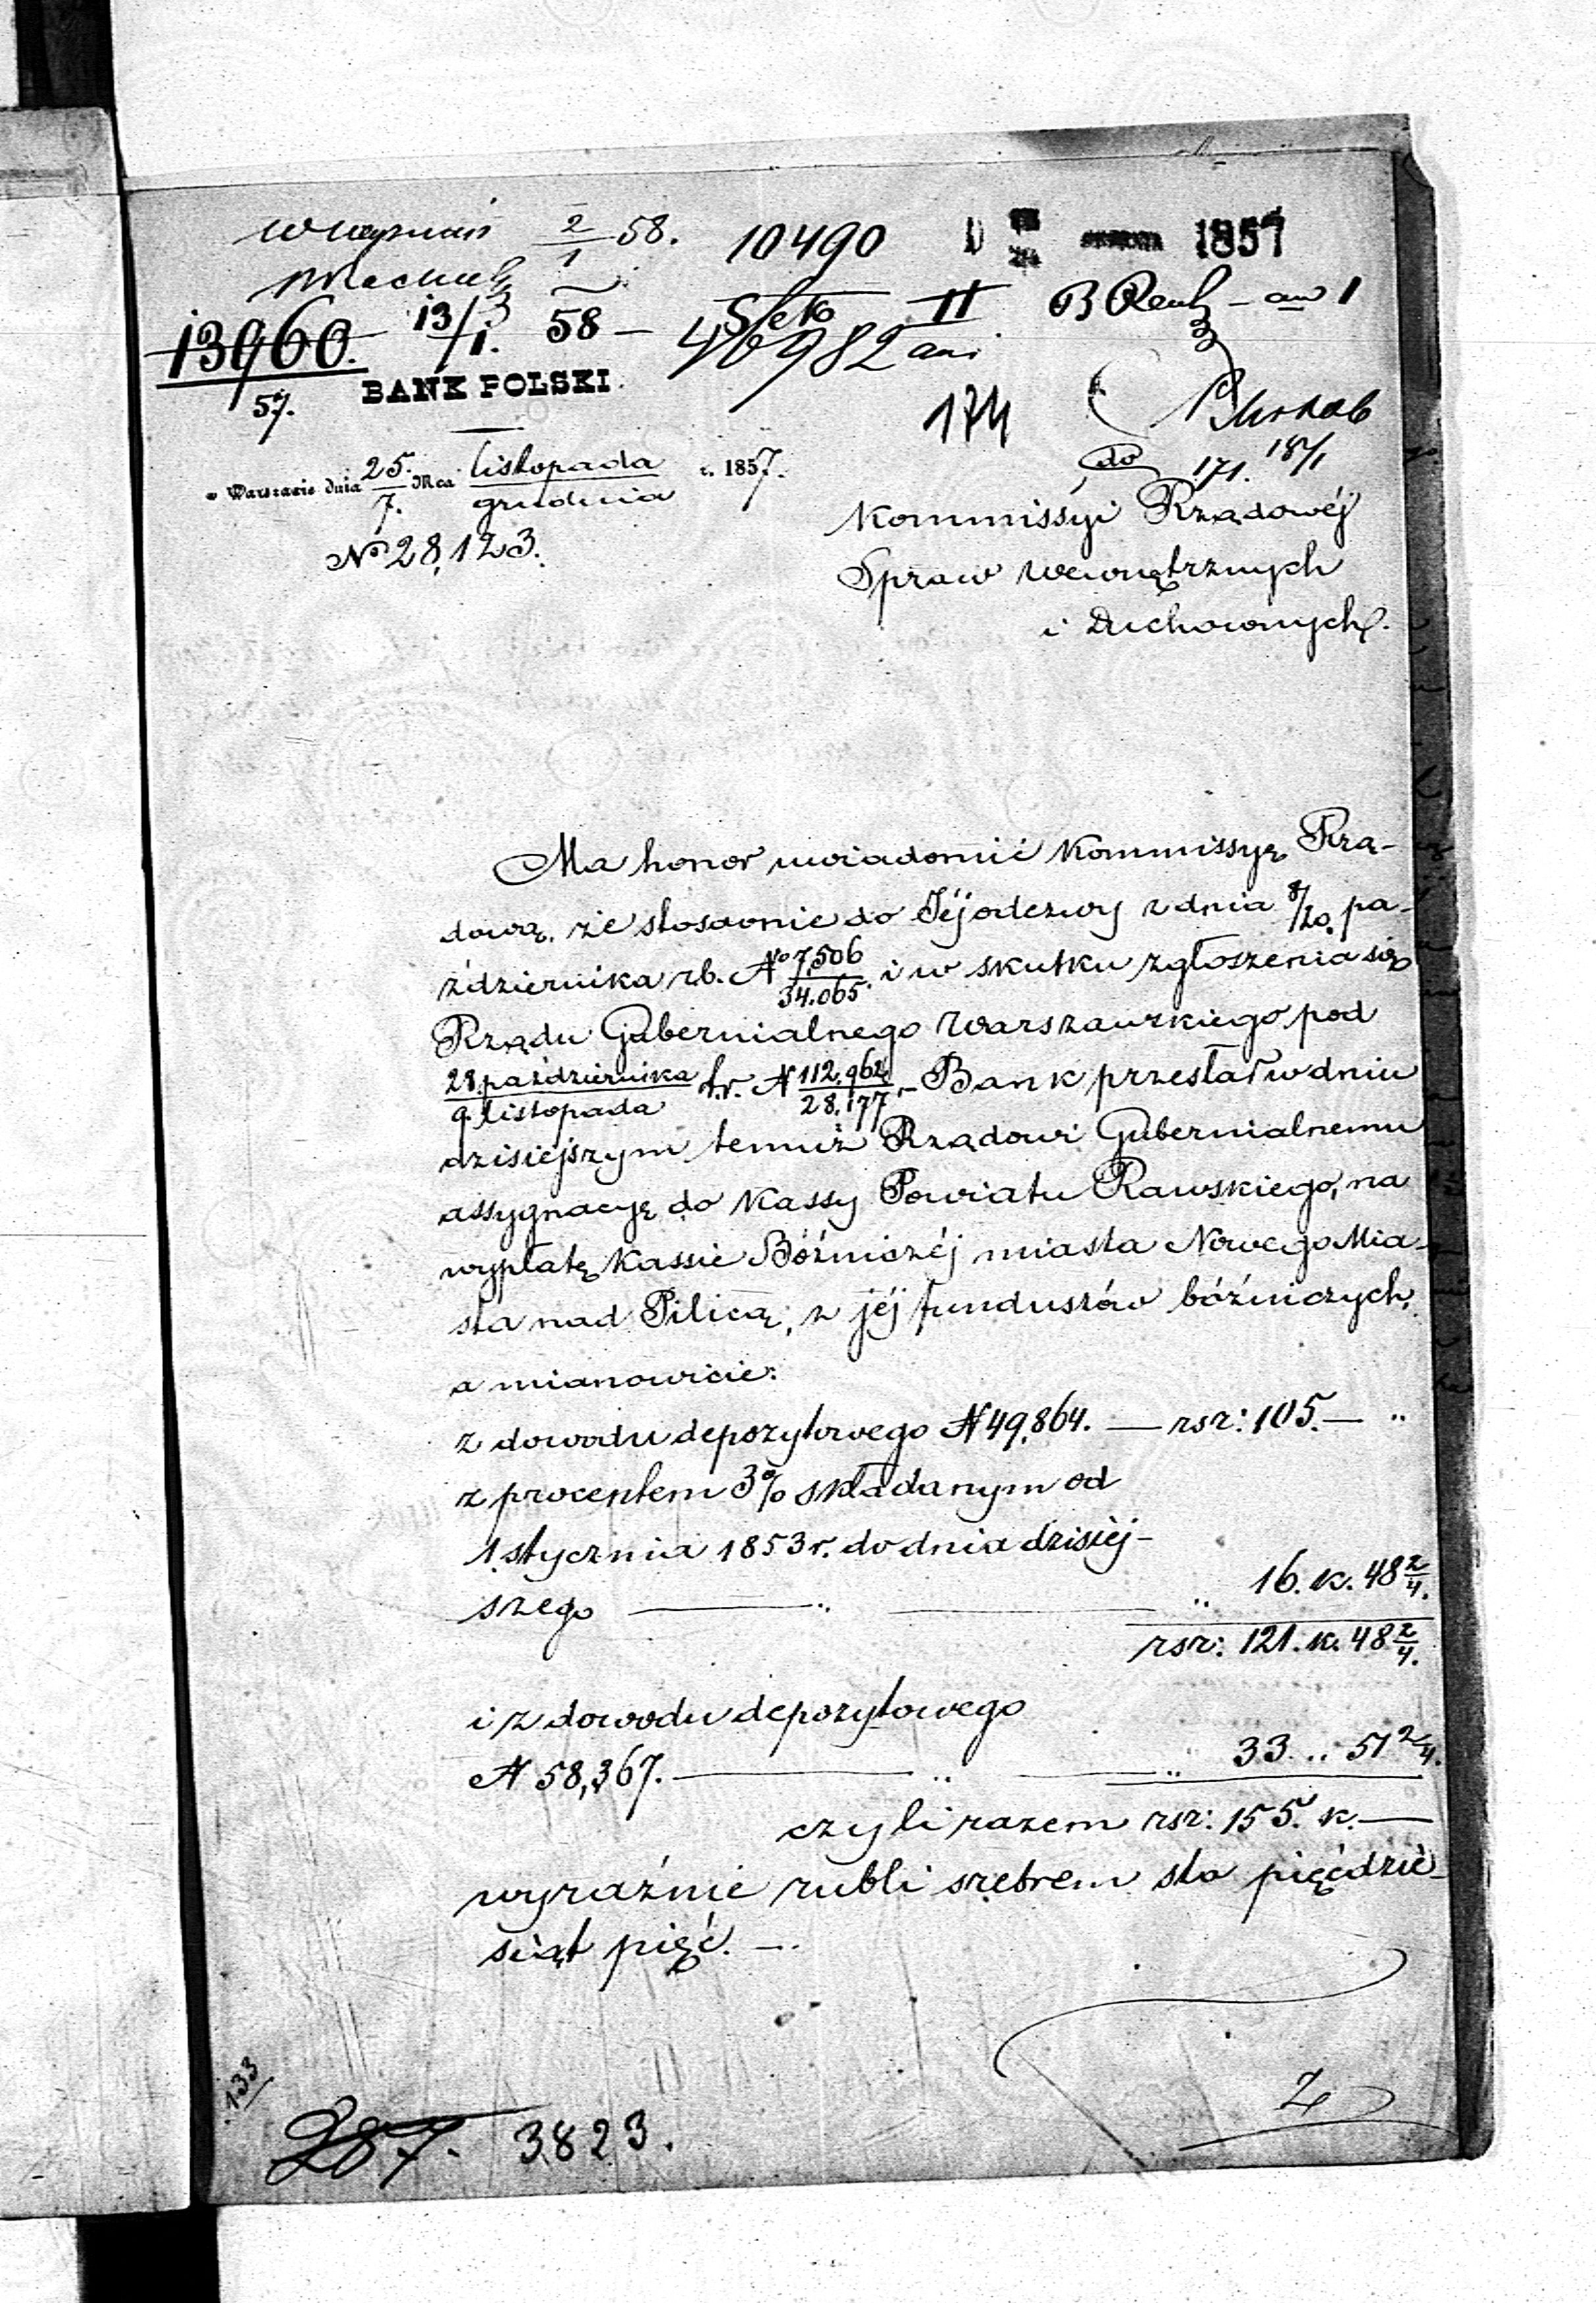 2/1 58. 10490 1857
13960. 13/1. 58 – Sekc II
57. 46982
BANK POLSKI.
174
w Warszawie dnia 25./7. Mca listopada/grudnia r. 1857.
do
171. 18/1
Nº 28,123.
Kommissyi Rządowéj
Spraw Wewnętrznych
i Duchownych.
Ma honor uwiadomić Kommissyę Rzą-
dową, że stosownie do Jéj odezwy z dnia 8/20 pa-
ździernika r.b. Nº 7,506/34.065. i w skutku zgłoszenia się
Rządu Gubernialnego Warszawskiego pod
28 października/9. listopada t.r. N 112,962/28,177. – Bank przesłał w dniu
dzisiejszym temuż Rządowi Gubernialnemu
assygnacyę do Kassy Powiatu Rawskiego, na
wypłatę Kassie Bóźniczéj miasta Nowego Mia-
sta nad Pilicą, z jéj funduszów bóźniczych,
a mianowicie:
z dowodu depozytowego N 49,864. — rsr: 105. — "
z procentem 3% składanym od
1. stycznia 1853 r. do dnia dzisiéj-
szego — " — " 16. k. 48 2/4.
rsr: 121. k. 48 2/4.
i z dowodu depozytowego
N 58,367. — " — " 33. " 51 2/4.
czyli razem rsr: 155. k. —
wyraźnie rubli srebrem sto pięćdzie-
siąt pięć. —.
133
287. 3823.